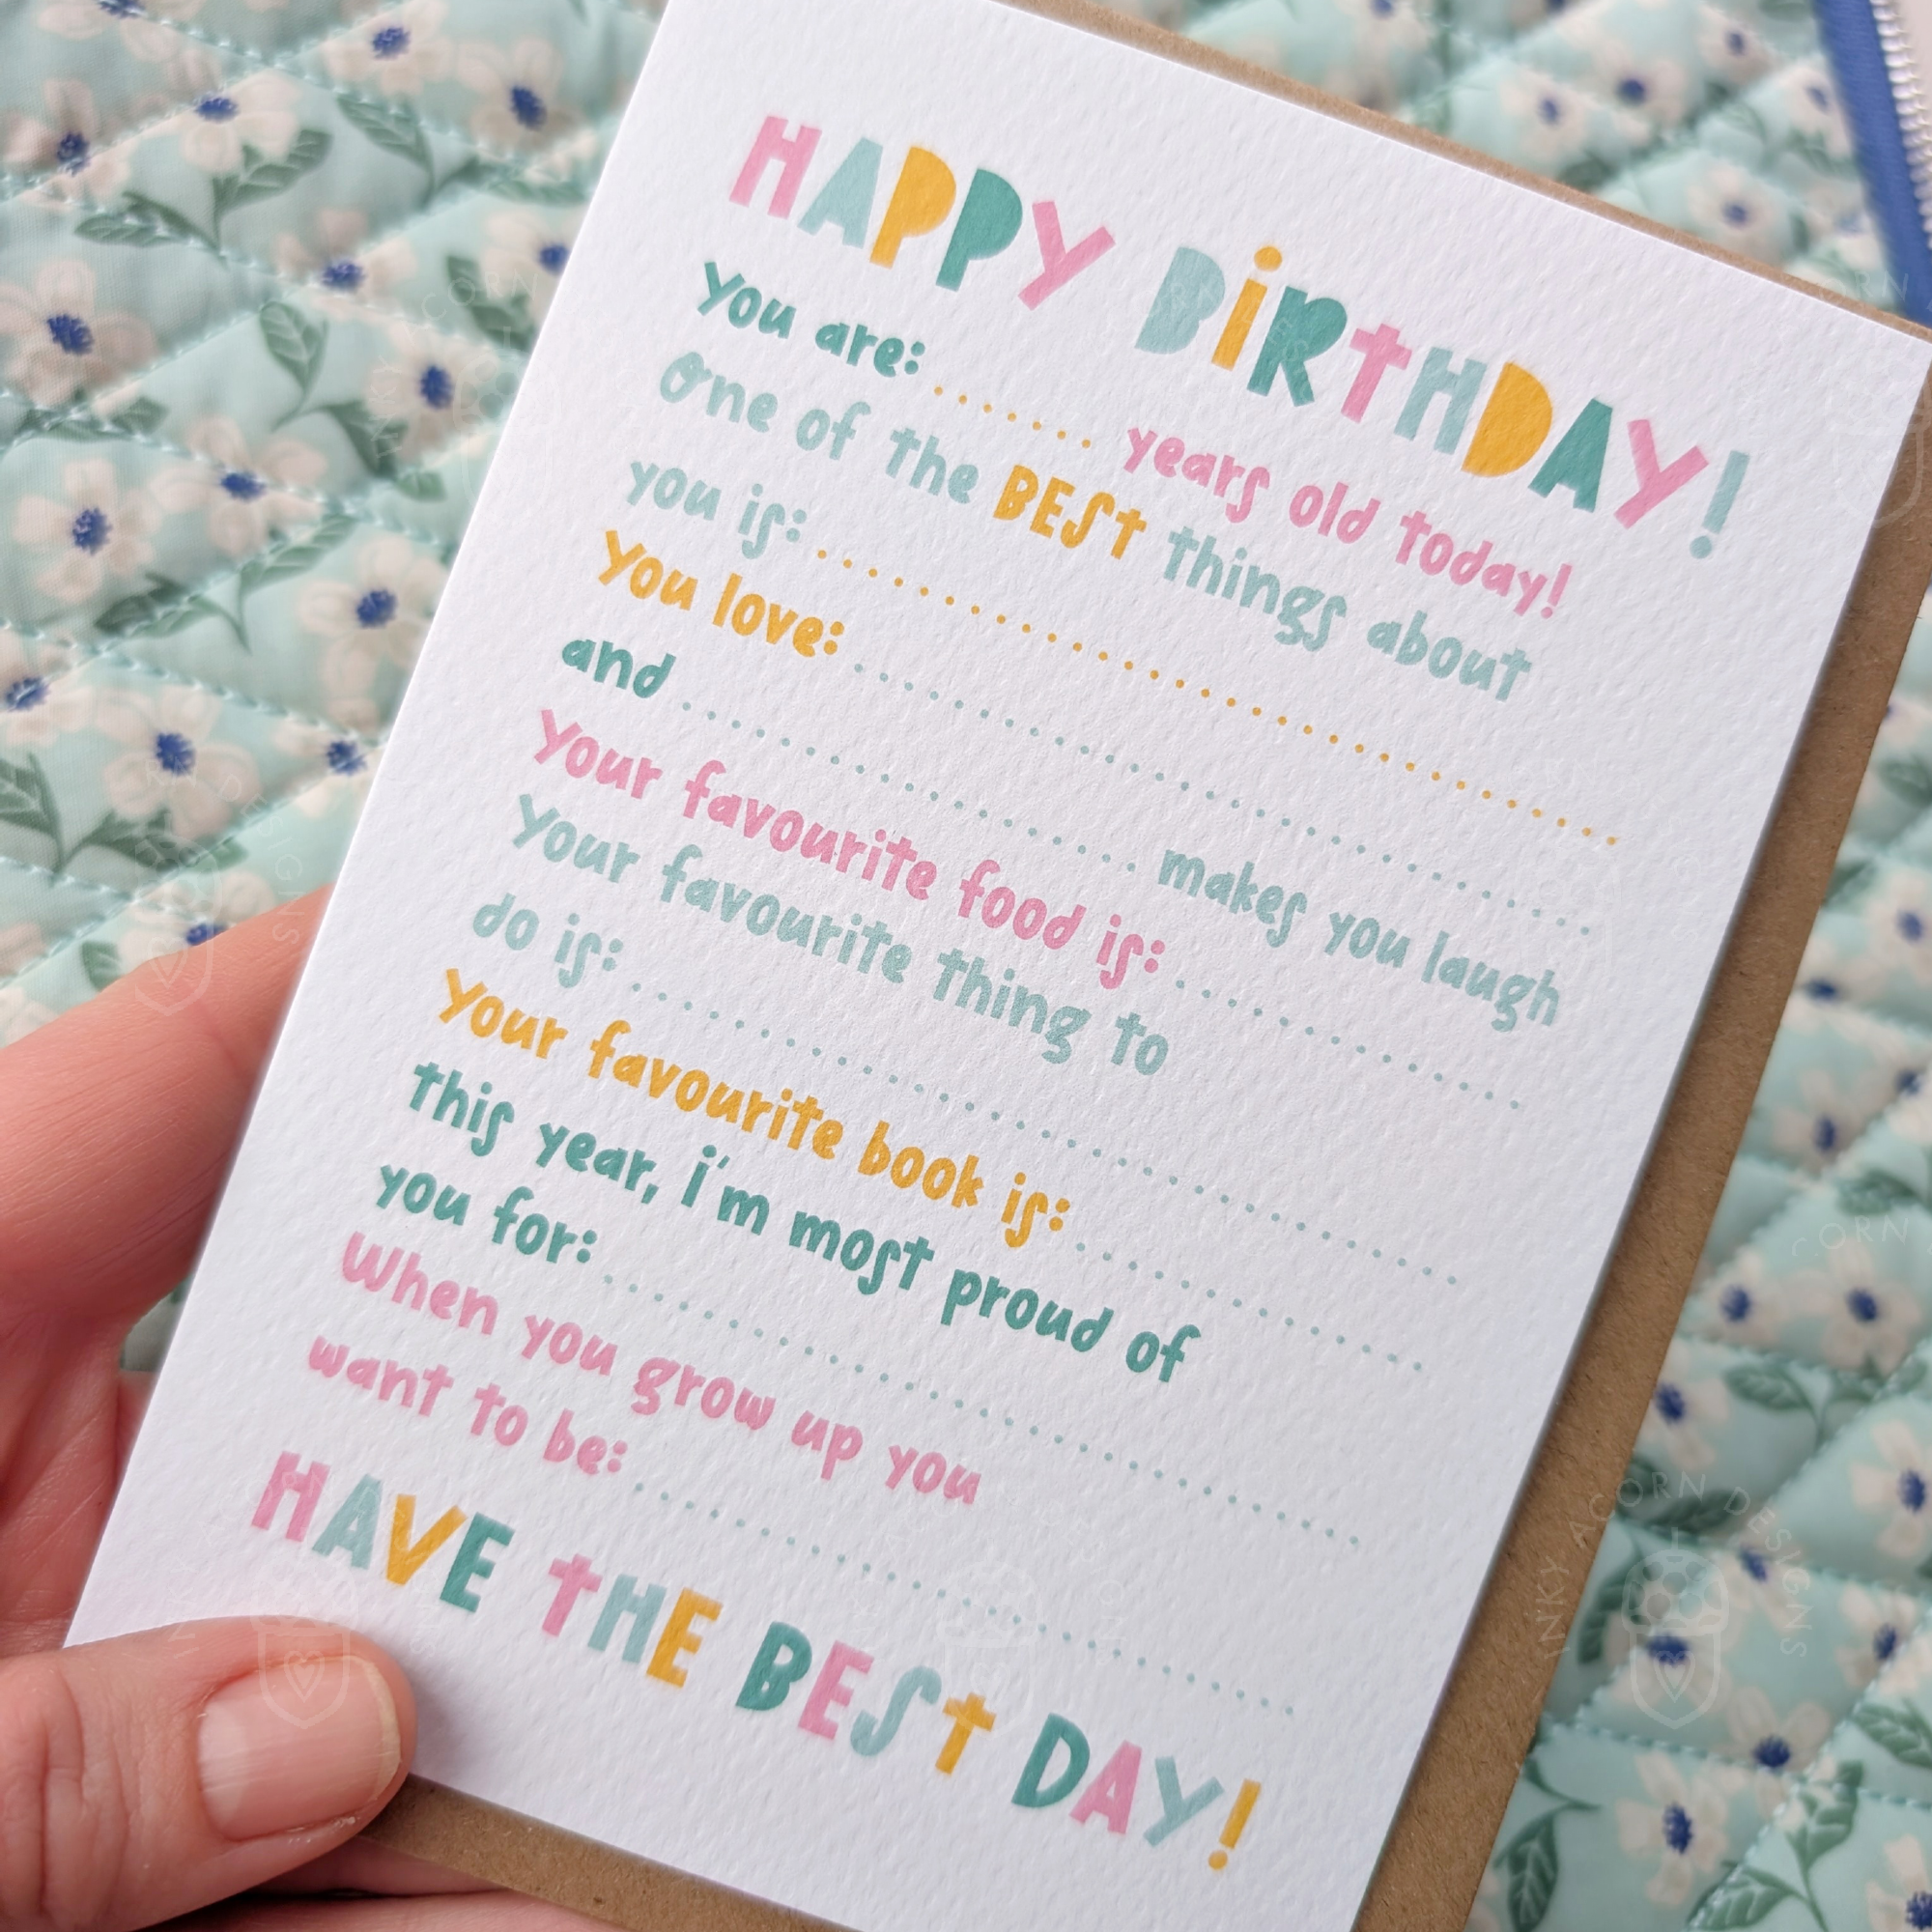 HAPPY BiRTHDAY!
You are: ....... years old today!
One of the BEST things about
you is: ...............................
You love: .............................
and .................. makes you laugh
Your favourite food is: ..............
Your favourite thing to
do is: ................................
Your favourite book is: ..............
This year, i'm most proud of
you for: ..............................
When you grow up you
want to be: ..........................
HAVE THE BEST DAY!
INKY ACORN DESIGNS